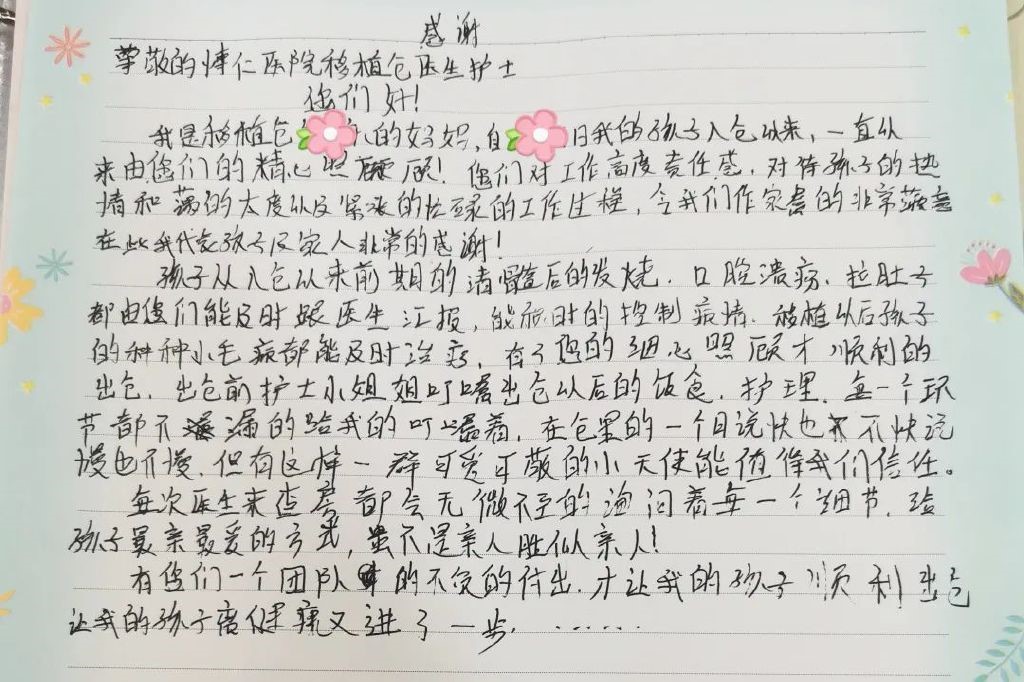 感谢
尊敬的博仁医院移植仓医生护士
您们好!
我是移植仓 的妈妈,自 日我的孩子入仓以来,一直以
来由您们的精心照顾!您们对工作高度责任感,对待孩子的热
情和蔼的太度以及紧张的忙碌的工作过程,令我们作家长的非常
在此我代表孩子及家人非常的感谢!
孩子从入仓以来前期的清髓后的发烧.口腔溃疡.拉肚子
都由您们能及时跟医生汇报,能及时的控制病情.移植以后孩子
的种种小毛病都能及时治疗,有了您的细心照顾才顺利的
出仓.出仓前护士小姐姐叮嘱出仓以后的饭食.护理.每一个环
节都不漏的给我的叮嘱着,在仓里的一个月说快也不快说
慢也不慢.但有这样一群可爱可敬的小天使能值得我们信任。
每次医生来查房都会无微不至的询问着每一个细节.给
孩子最亲最爱的方式,虽不是亲人胜似亲人!
有您们一个团队的不负的付出.才让我的孩子顺利出仓
让我的孩子离健康又进了一步.······